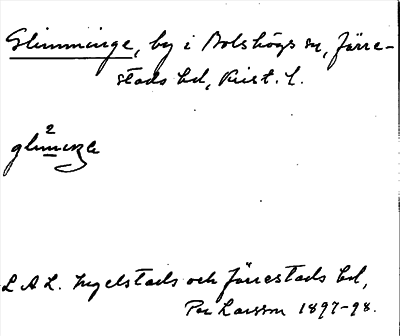 Glimminge, by i Bolshögs sn, Järre-
stads hd, Krist. L.
2
LAL. Ingelstads och Järrestads hd,
Per Larsson 1897-98.